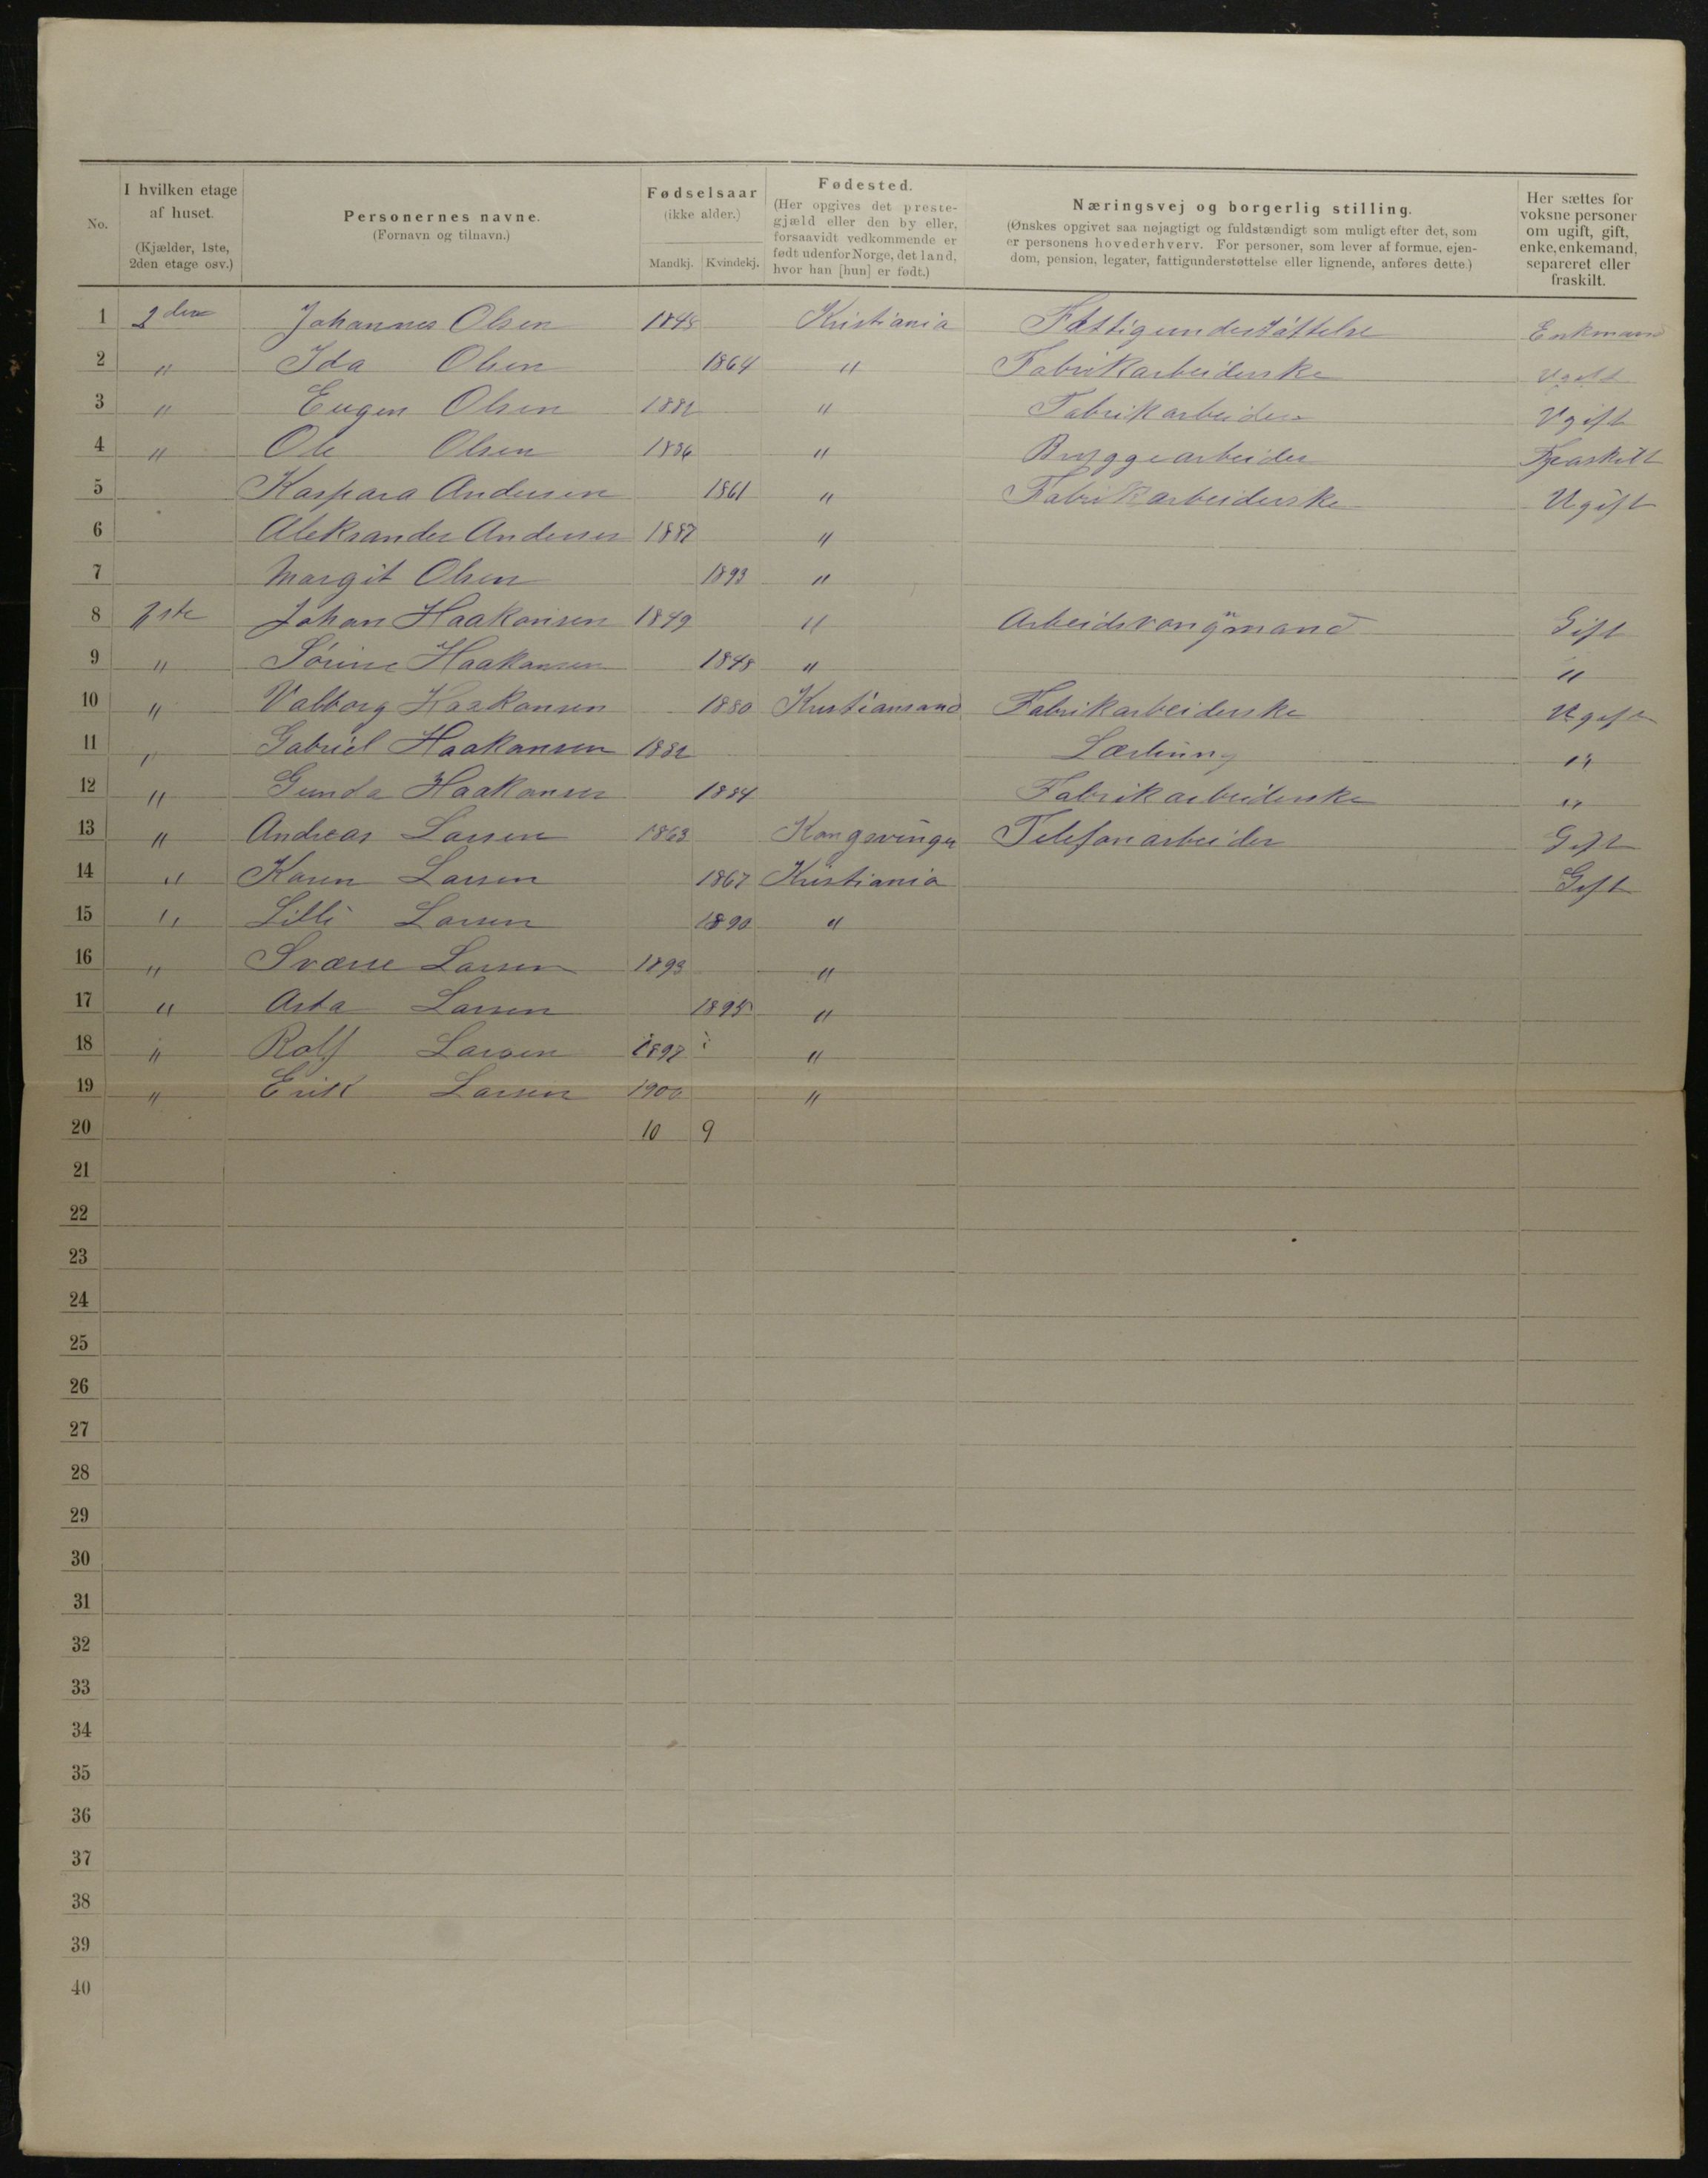 No.
I hvilken etage af huset. (Kjælder, 1ste, 2den etage osv.)
Personernes navne. (Fornavn og tilnavn.)
Fødselsaar (ikke alder.) Mandkj. Kvindekj.
Fødested. (Her opgives det prestegjæld eller den by eller, forsaavidt vedkommende er født udenfor Norge, det land, hvor han [hun] er født.)
Næringsvej og borgerlig stilling. (Ønskes opgivet saa nøjagtigt og fuldstændigt som muligt efter det, som er personens hovederhverv. For personer, som lever af formue, ejendom, pension, legater, fattigunderstøttelse eller lignende, anføres dette.)
Her sættes for voksne personer om ugift, gift, enke, enkemand, separeret eller fraskilt.
1 2den Johannes Olsen 1848 Kristiania Fattigunderstøttelse Enkmand
2 " Ida Olsen 1864 " Fabrikarbeiderske Ugift
3 " Eugen Olsen 1882 " Fabrikarbeider Ugift
4 " Ole Olsen 1836 " Bryggearbeider Fraskilt
5 Kaspara Andersen 1861 " Fabrikarbeiderske Ugift
6 Aleksander Andersen 1887 "
7 Margit Olsen 1893 "
8 1ste Johan Haakonsen 1849 " Gift
9 " Sørine Haakansen 1848 " "
10 " Valborg Haakonsen 1880 Kristiansand Fabrikarbeiderske Ugift
11 " Gabriel Haakansen 1882 Lærling "
12 " Gunda Haakansen 1884 Fabrikarbeiderske "
13 " Andreas Larsen 1863 Kongsvinger Telefonarbeider Gift
14 " Karen Larsen 1867 Kristiania Gift
15 " Lilli Larsen 1890 "
16 " Sværre Larsen 1893 "
17 " Asta Larsen 1895 "
18 " Rolf Larsen 1897 "
19 " Erik Larsen 1900 "
20 10 9
21
22
23
24
25
26
27
28
29
30
31
32
33
34
35
36
37
38
39
40